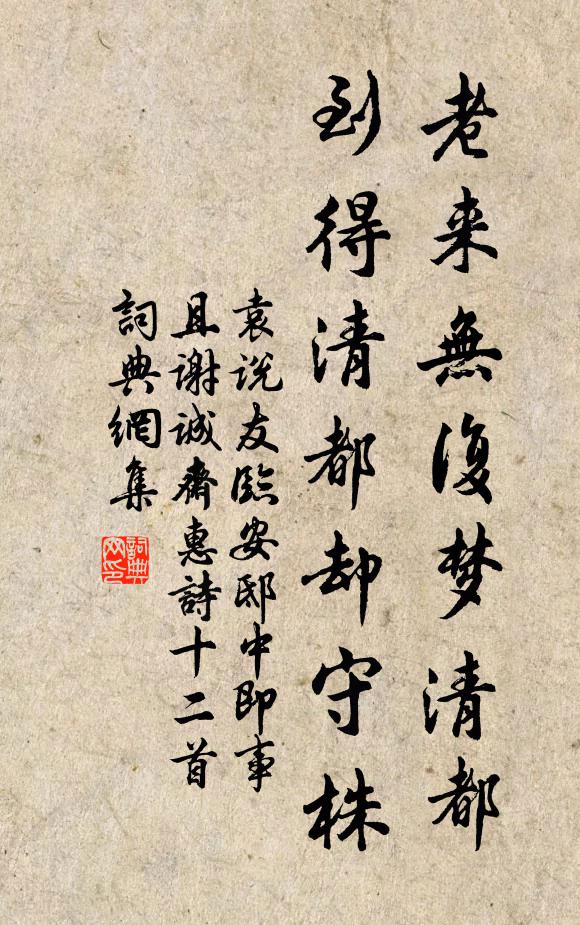 老来無復梦清都
到得清都却守株
袁说友臨安邸中即事
且谢诚齋惠詩十二首
詞典網集
詞典网印